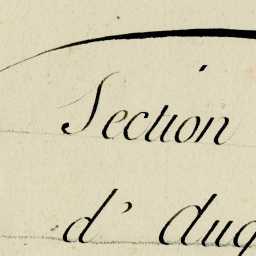 Section
d' Aug